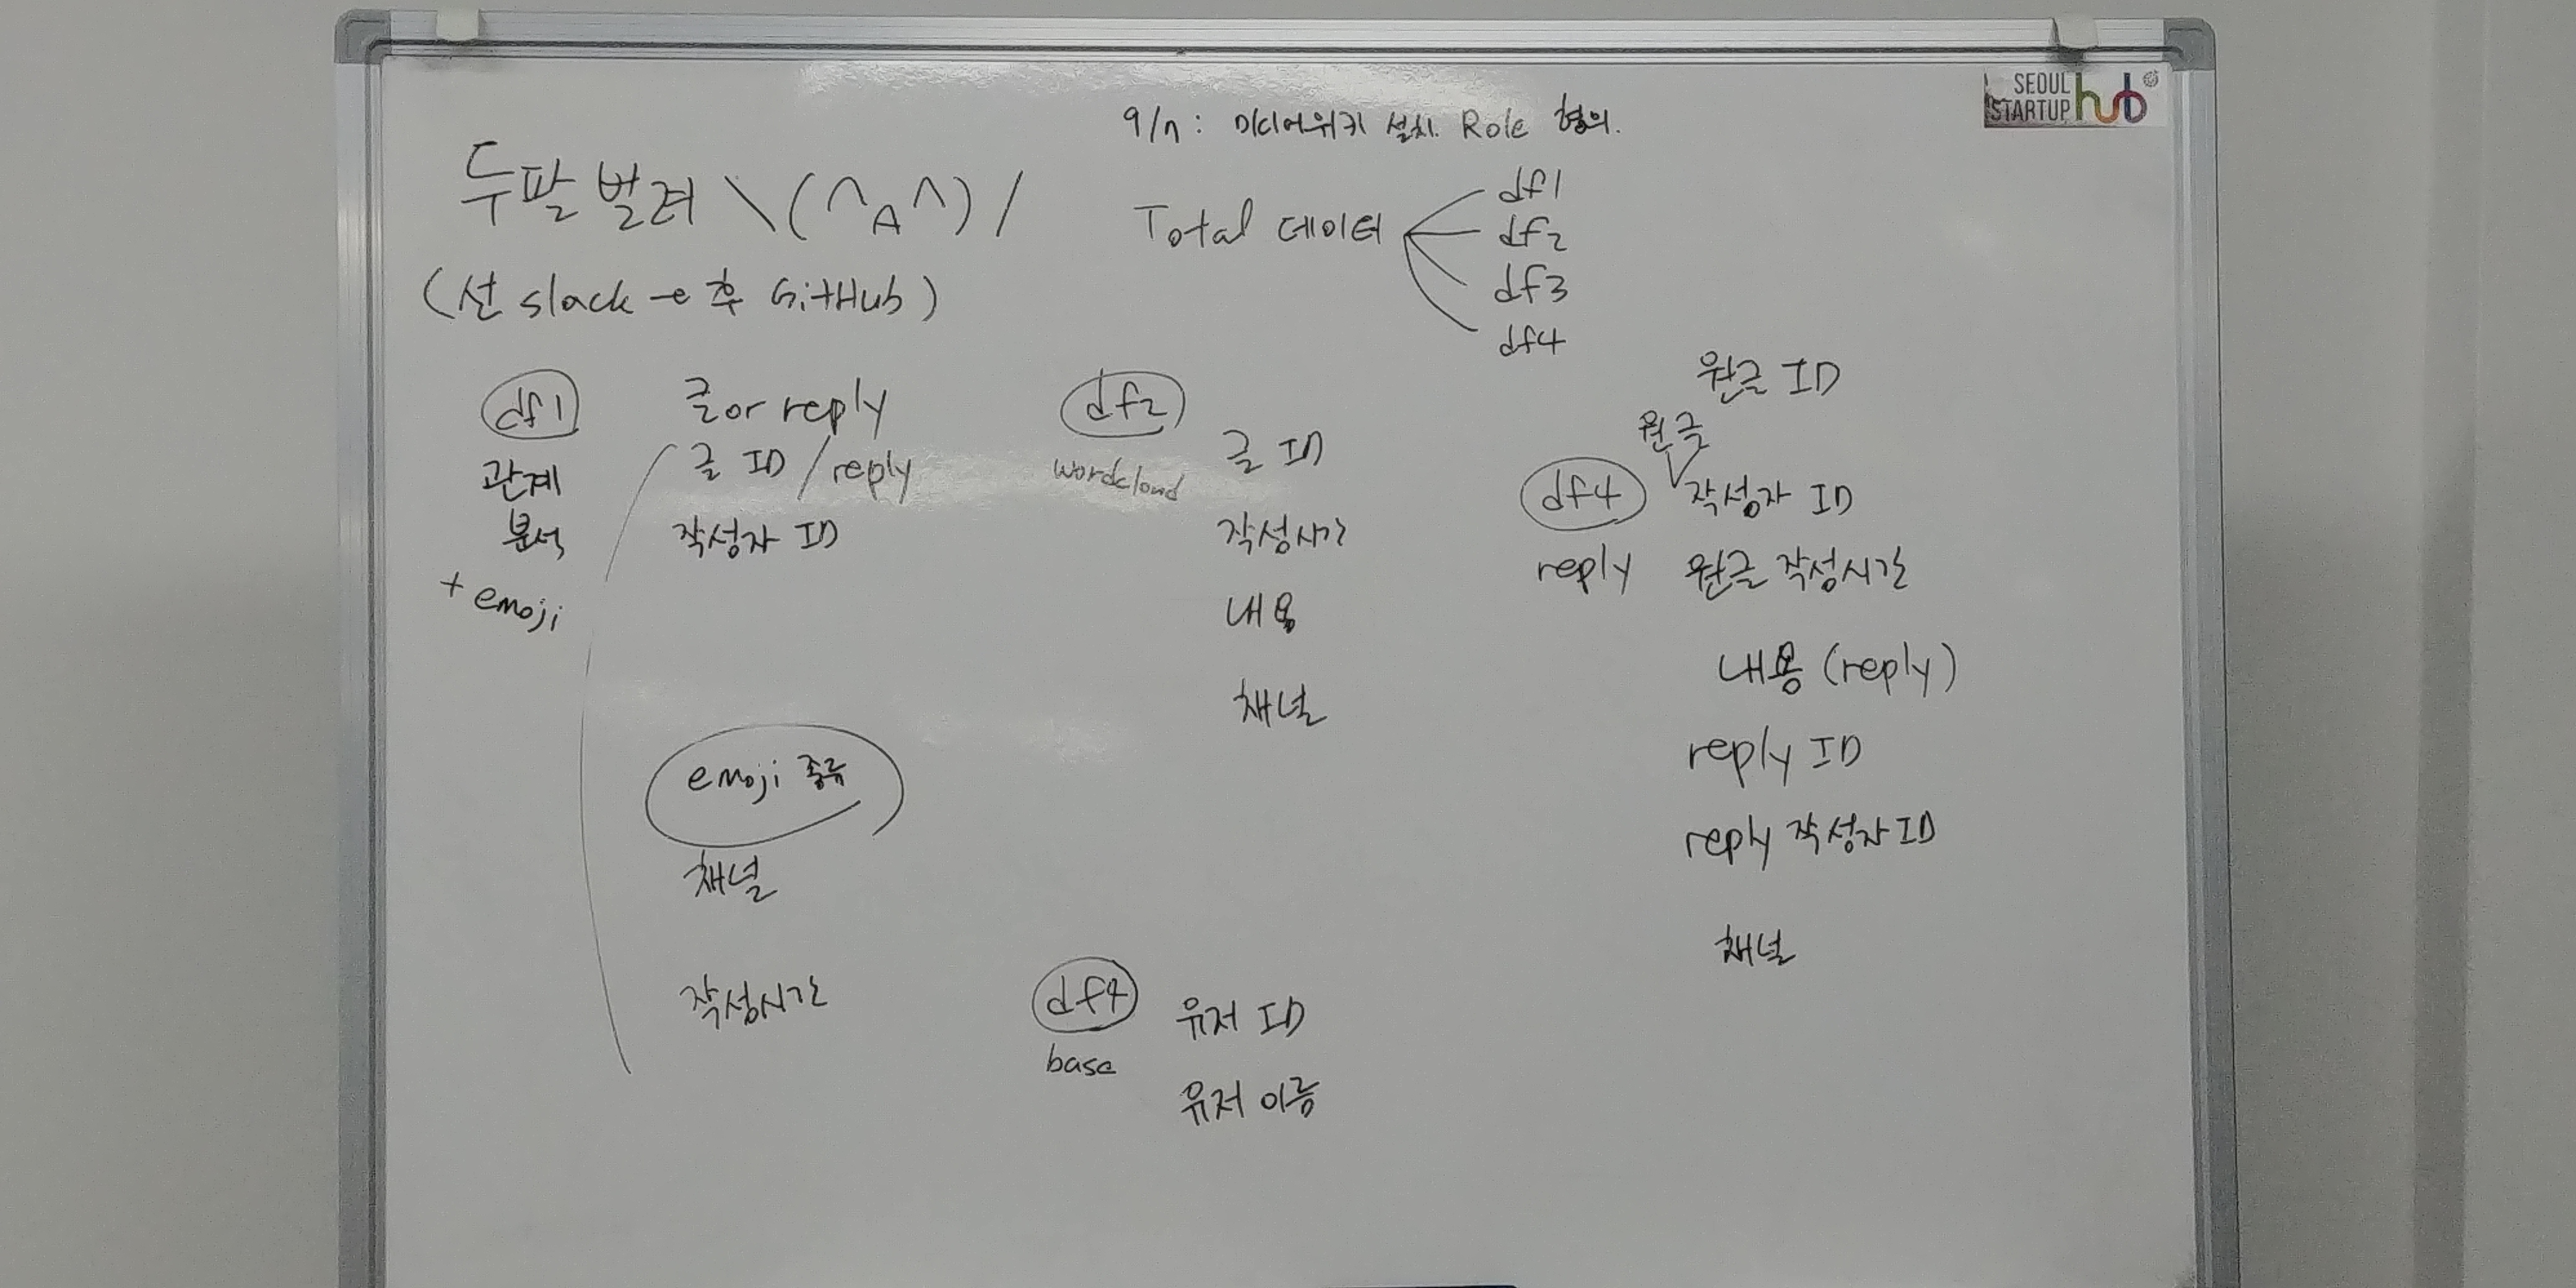 SEOUL
STARTUP hub
9/n : 미디어위키 설치. Role 협의.
두팔 벌려 \(^A^)/
(선 slack → 후 GitHub)
Total 데이터
df1
df2
df3
df4
df1
관계
분석
+ emoji
글 or reply
글 ID / reply
작성자 ID
emoji 종류
채널
작성시간
df2
wordcloud
글 ID
작성시간
내용
채널
df4
base
유저 ID
유저 이름
df4
reply
원글 ID
원글
작성자 ID
원글 작성시간
내용 (reply)
reply ID
reply 작성자 ID
채널